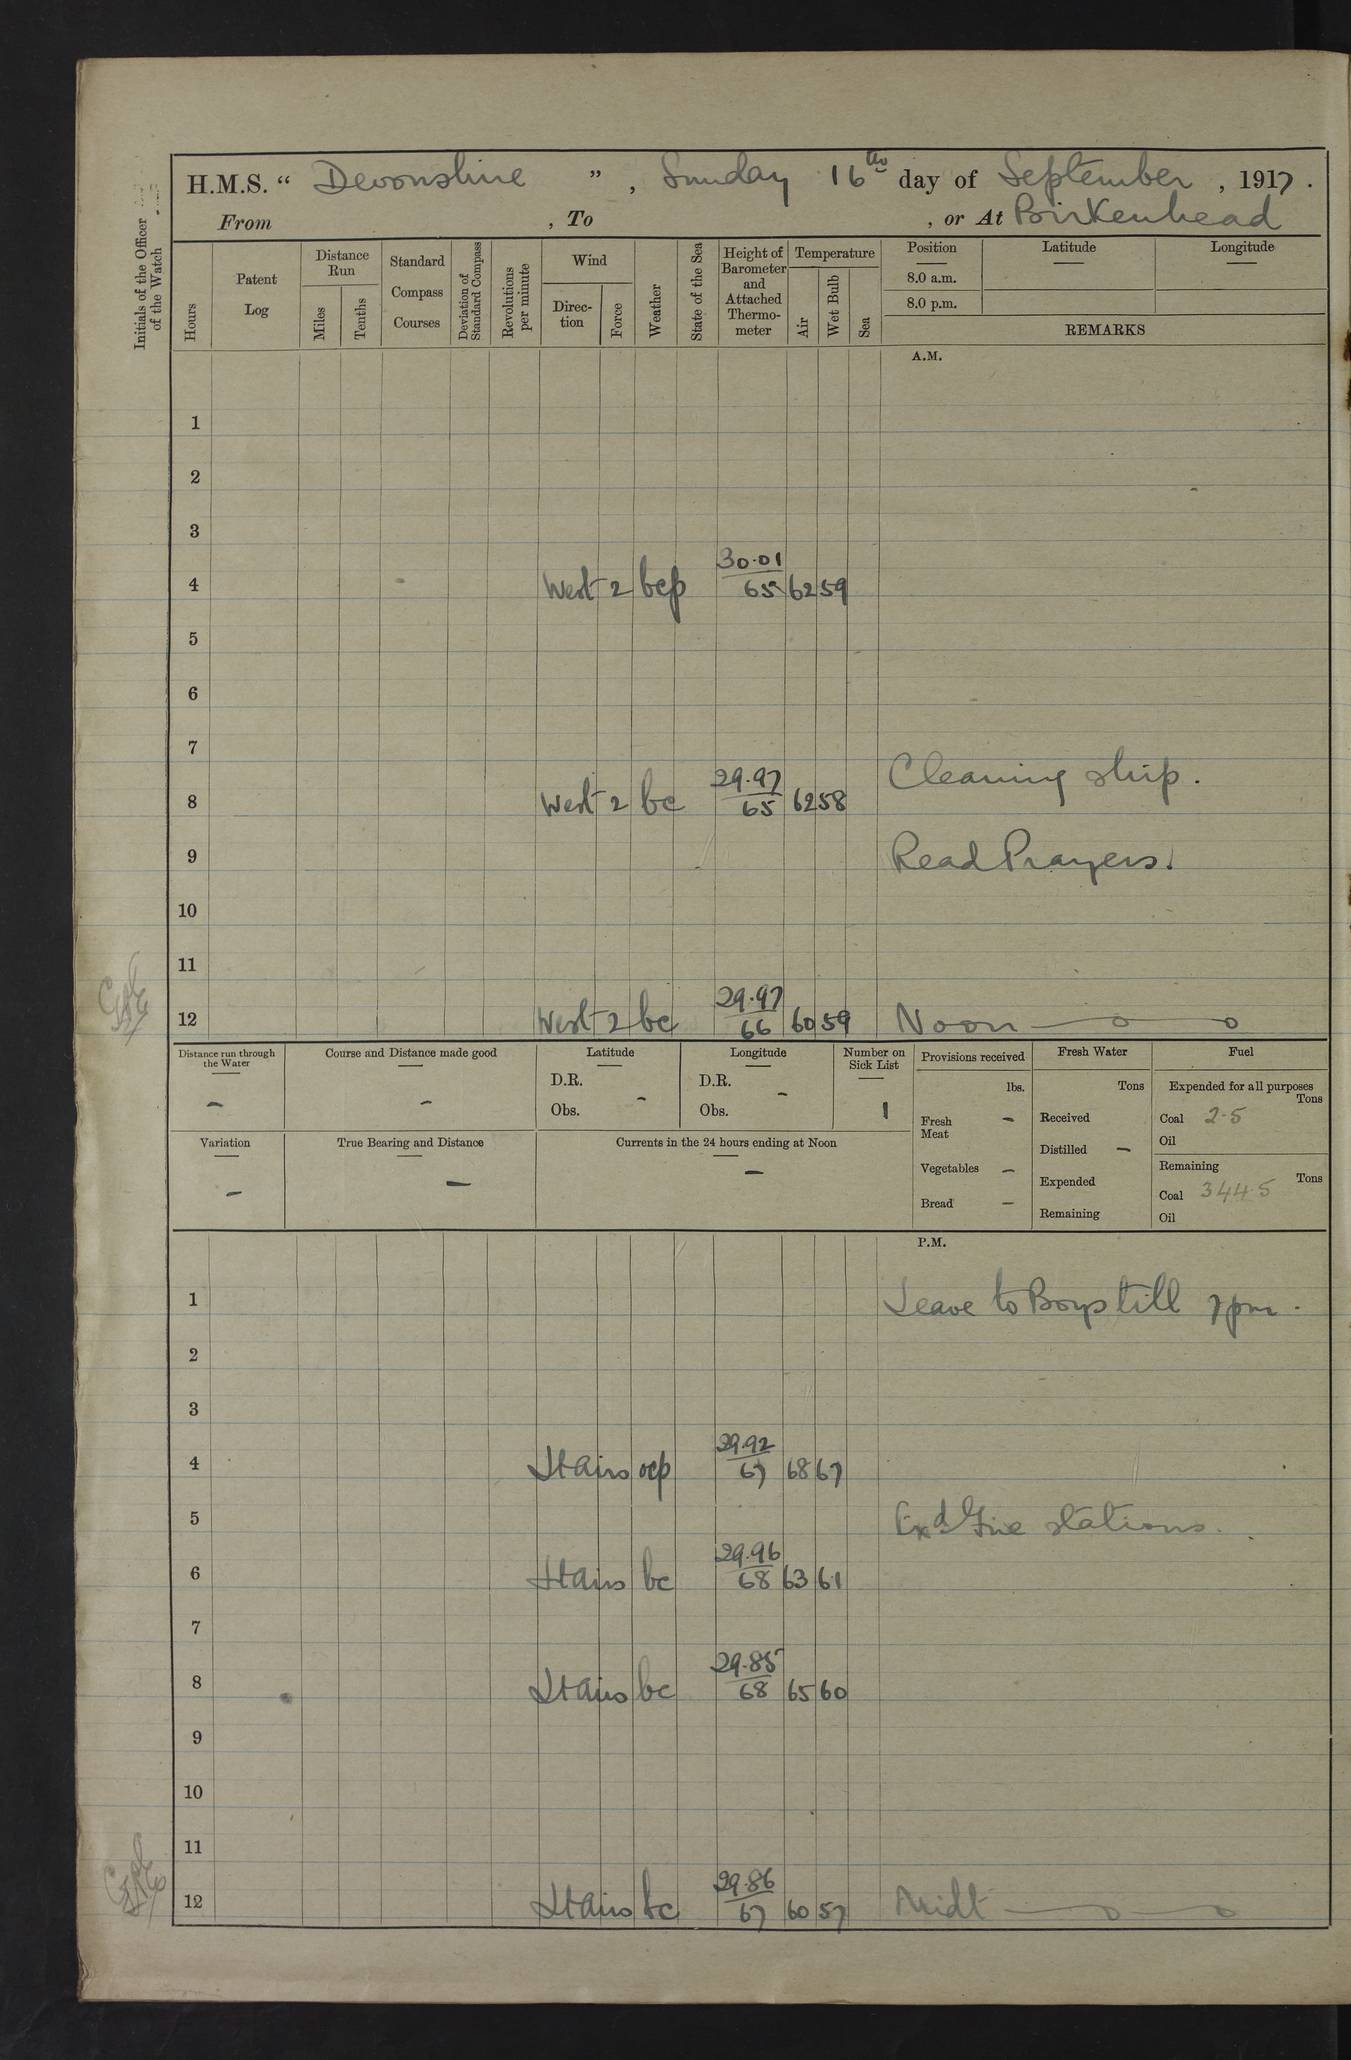 H.M.S. “ Devonshire ” , Sunday 16th day of September , 1917 .
From , To , or At Birkenhead
Initials of the Officer of the Watch
Hours
Patent Log
Distance Run
Miles
Tenths
Standard Compass Courses
Deviation of Standard Compass
Revolutions per minute
Wind
Direc-tion
Force
Weather
State of the Sea
Height of Barometer and Attached Thermo-meter
Temperature
Air
Wet Bulb
Sea
Position Latitude Longitude
8.0 a.m.
8.0 p.m.
REMARKS
A.M.
1
2
3
30.01
4 West 2 bcp 65 62 59
5
6
7
Cleaning ship.
29.97
8 West 2 bc 65 62 58
9 Read Prayers.
10
11
29.97
12 West 2 bc 66 60 59 Noon
Distance run through the Water
-
Course and Distance made good
-
Latitude
D.R. -
Obs.
Longitude
D.R. -
Obs.
Number on Sick List
1
Variation
-
True Bearing and Distance
-
Currents in the 24 hours ending at Noon
-
Provisions received
lbs.
Fresh Meat -
Vegetables -
Bread -
Fresh Water
Tons
Received
Distilled -
Expended
Remaining
Fuel
Expended for all purposes
Tons
Coal 2.5
Oil
Remaining
Tons
Coal 344.5
Oil
P.M.
1 Leave to Boys till 7pm.
2
3
29.92
4 Ltairs ocp 67 68 67
5 Exd Fire stations.
29.96
6 Ltairs bc 68 63 61
7
29.85
8 Ltairs bc 68 65 60
9
10
11
29.86
12 Ltairs bc 67 60 57 Midt